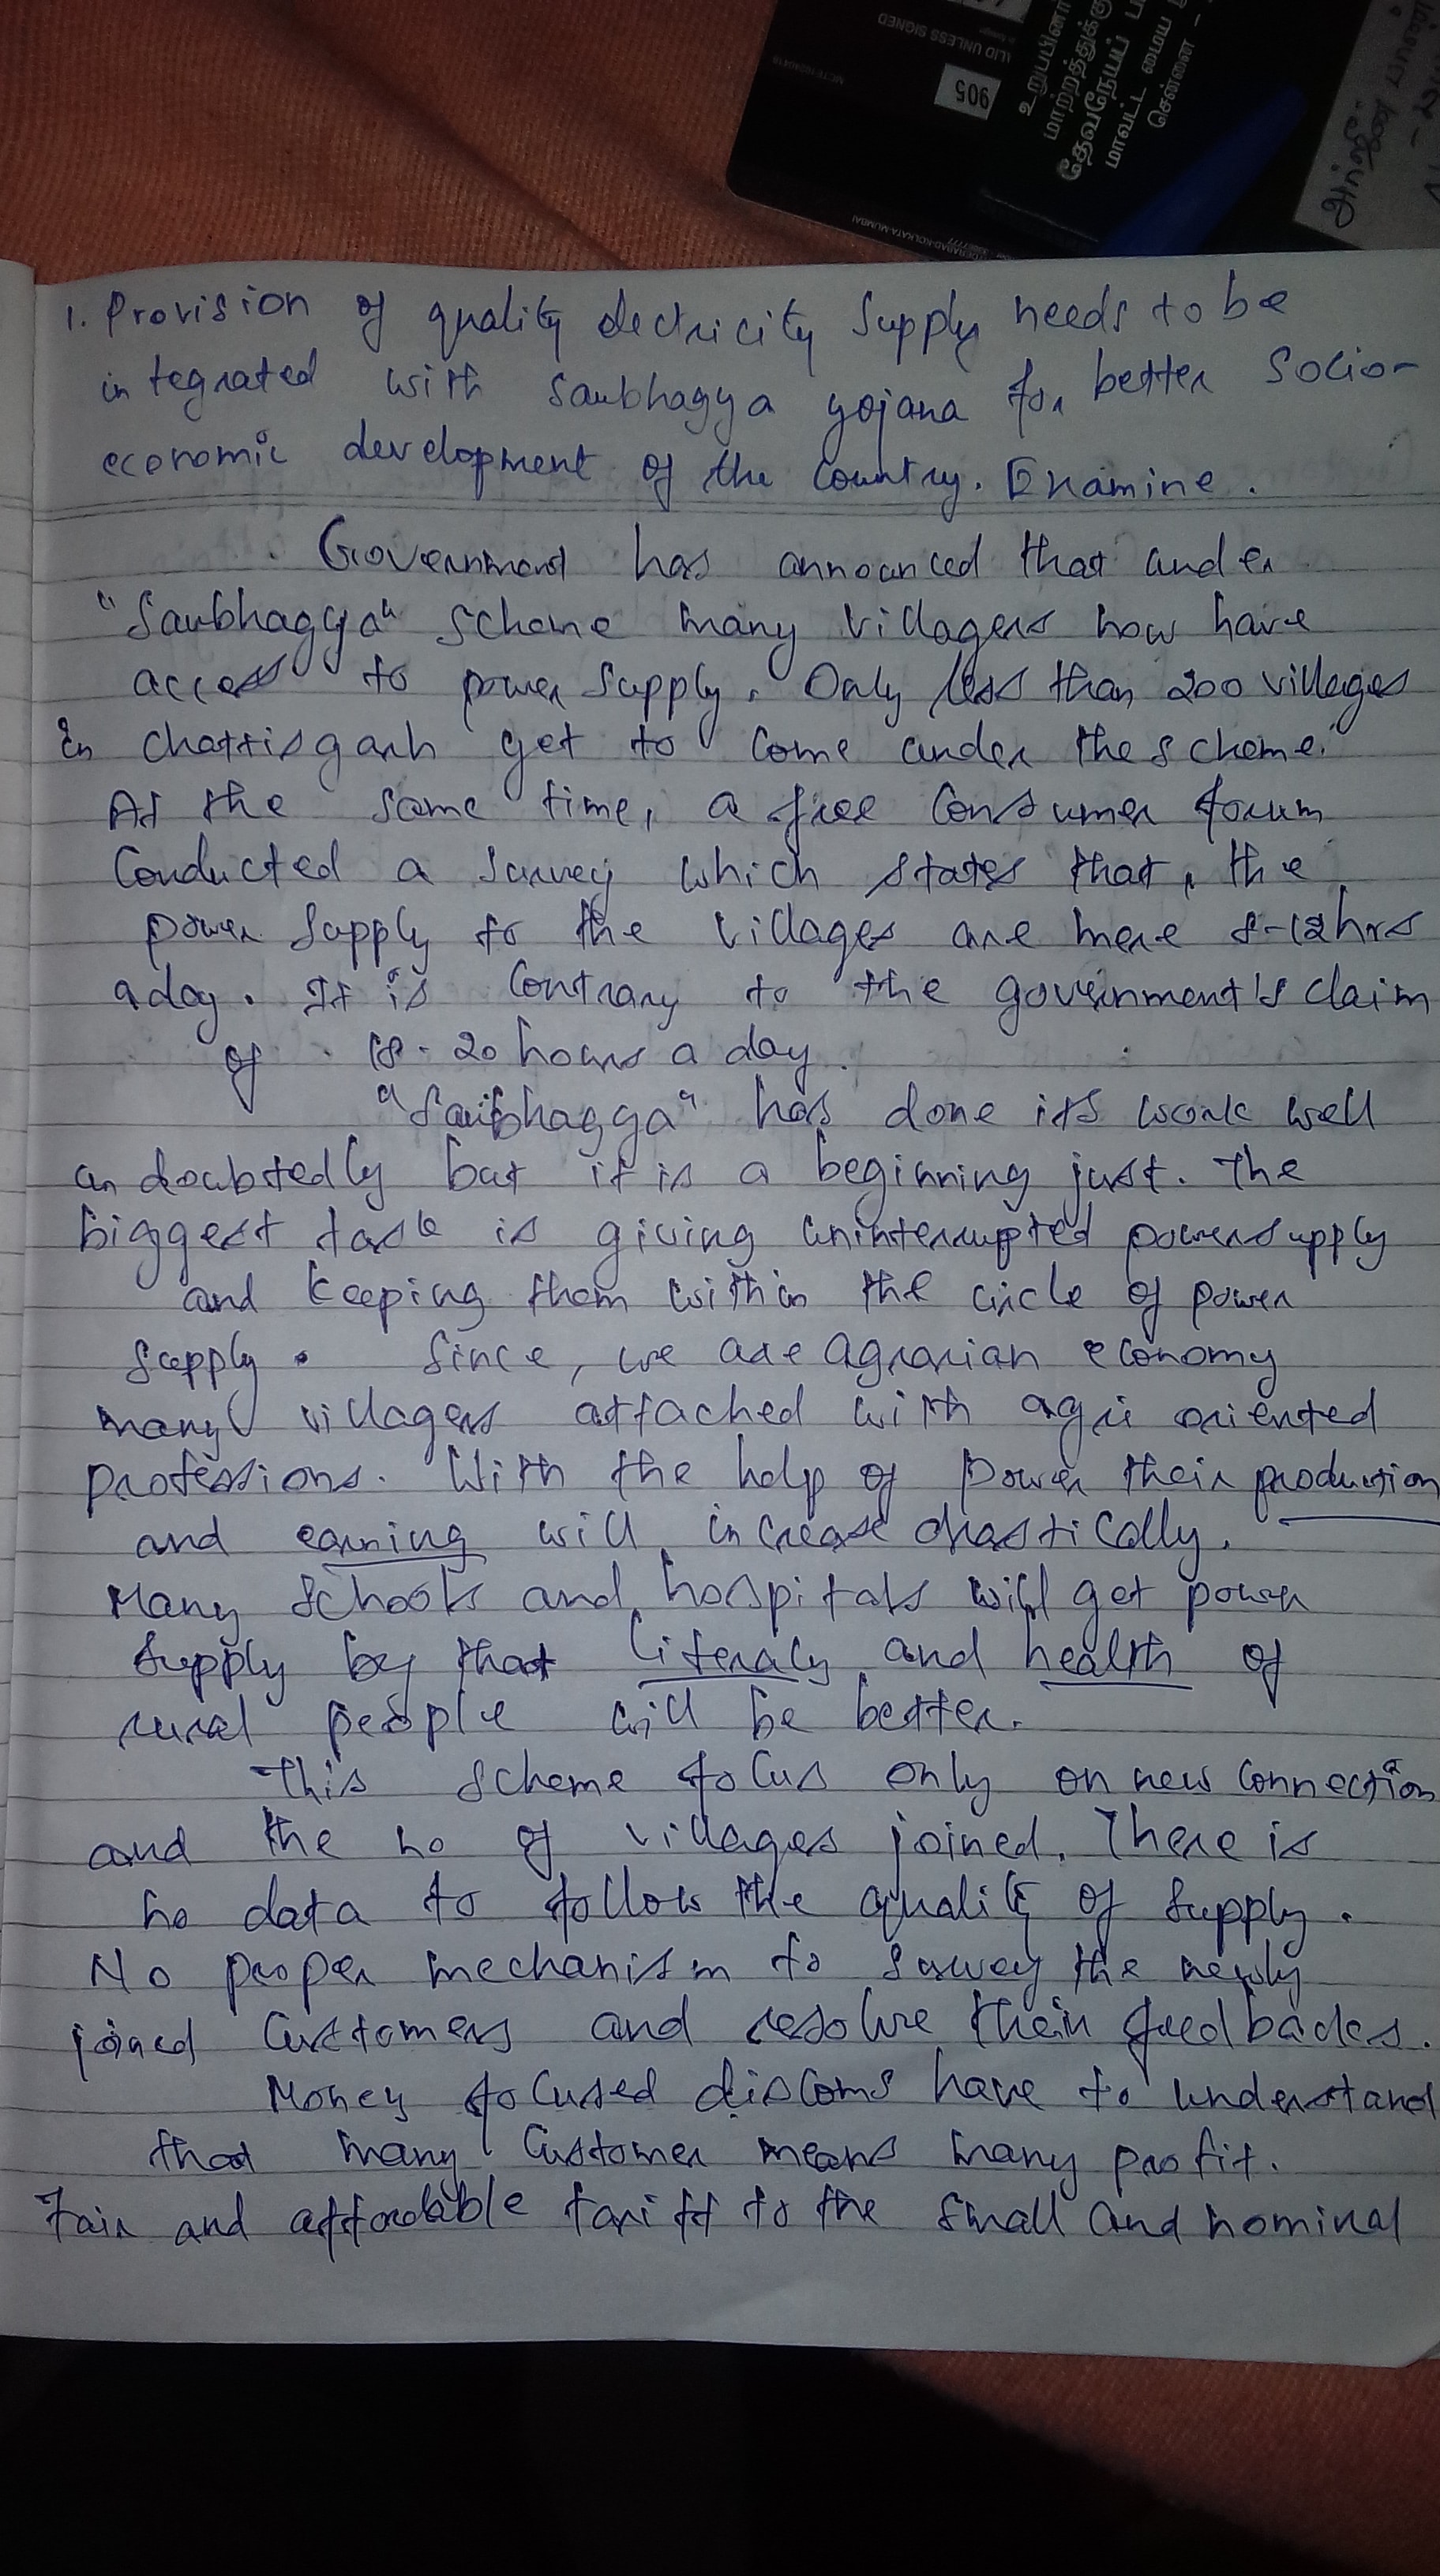 905
1. Provision of quality electricity supply needs to be
integrated with Saubhagya yojana for better socio-
economic development of the country. Examine.
Government has announced that under
"Saubhagya" scheme many villagers now have
access to power supply. Only less than 200 villages
in chattisgarh get to come under the scheme.
At the same time, a free consumer forum
conducted a survey which states that, the
power supply to the villages are mere 8-12hrs
a day. It is contrary to the government's claim
of 18-20 hours a day.
"Saubhagya" has done its work well
undoubtedly but it is a beginning just. The
biggest task is giving uninterrupted power supply
and keeping them within the circle of power
supply. Since, we are agrarian economy
many villagers attached with agri oriented
professions. With the help of power their production
and earning will increase drastically.
Many schools and hospitals will get power
supply by that literacy and health of
rural people will be better.
This scheme focus only on new connection
and the no of villages joined. There is
no data to follow the quality of supply.
No proper mechanism to survey the newly
joined customers and resolve their feedbacks.
Money focused discoms have to understand
that many customer means many profit.
Fair and affordable tariff to the small and nominal